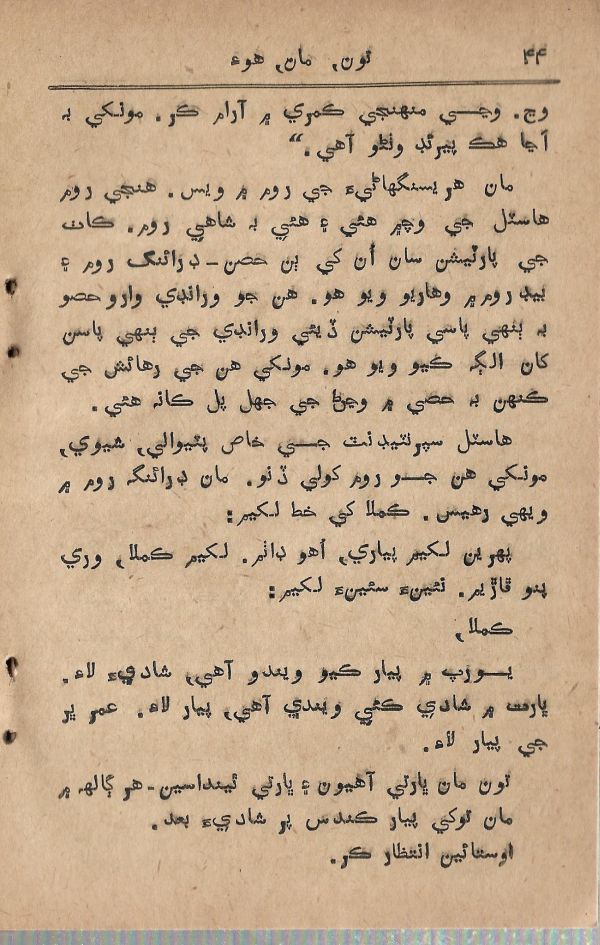 ۴۴
تون، مان، هوءِ
وڃ. وڃي منهنجي ڪمري ۾ آرام ڪر. مونکي به
اڃا هڪ پيرئڊ وٺڻو آهي.“
مان هريسنگهاڻيءَ جي روم ۾ ويس. هنجي روم
هاسٽل جي وچ۾ هئي ۽ هئي به شاهي روم. ڪاٺ
جي پارٽيشن سان اُن کي ٻن حصن - ڊرائنگ روم ۽
بيڊ روم ۾ ورهايو ويو هو. هن جو ورانڊي وارو حصو
به ٻنهي پاسي پارٽيشن ڏيئي ورانڊي جي ٻنهي پاسن
کان الڳ ڪيو ويو هو. مونکي هن جي رهائش جي
ڪنهن به حصي ۾ وڃڻ جي جهل پل ڪانه هئي.
هاسٽل سپرنٽيڊنٽ جي خاص پٽيوالي، شيوي،
مونکي هن جو روم کولي ڏنو. مان ڊرائنگ روم ۾
ويهي رهيس. ڪملا کي خط لکيم:
پهرين لکيم پياري، اُهو ڊاٺم. لکيم ڪملا، وري
پنو ڦاڙيم. نئينءَ سئينءَ لکيم:
ڪملا،
يورپ ۾ پيار ڪيو ويندو آهي، شاديءَ لاءِ.
ڀارت ۾ شادي ڪئي ويندي آهي، پيار لاءِ. عمر ڀر
جي پيار لاءِ.
تون مان ڀارتي آهيون ۽ ڀارتي ٿينداسين - هر ڳالهه ۾
مان توکي پيار ڪندس پر شاديءَ بعد.
اوستائين انتظار ڪر.